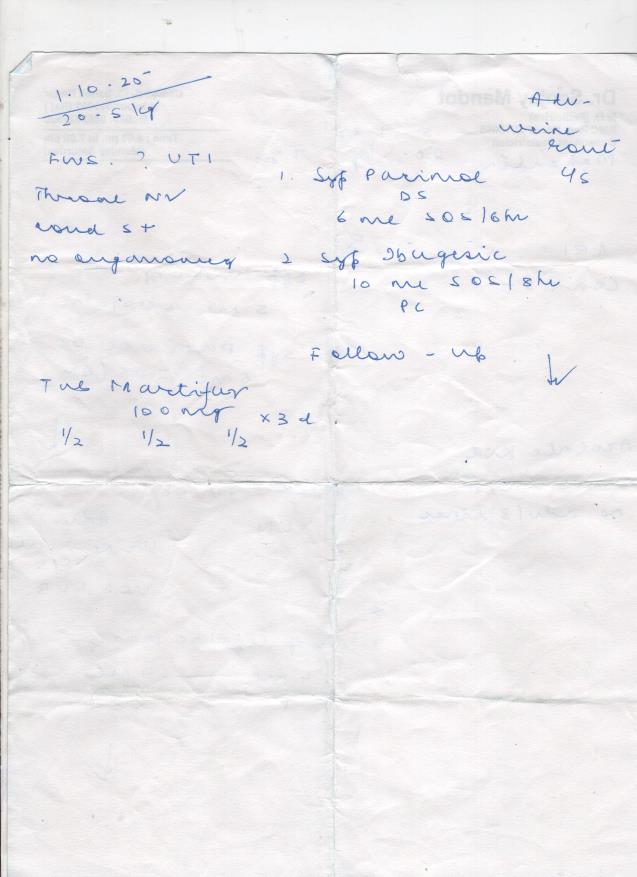 1.10.25
20.5 kg
FWS. ? UTI
Throat NV
no organomeg
Adv-
urine
rout
1. Syp Parimol 45
DS
6 ml SOS/6hr
2 Syp Ibugesic
10 ml SOS/8hr
PC
Follow-up
Tab Martifur
100 mg x 3 d
1/2 1/2 1/2